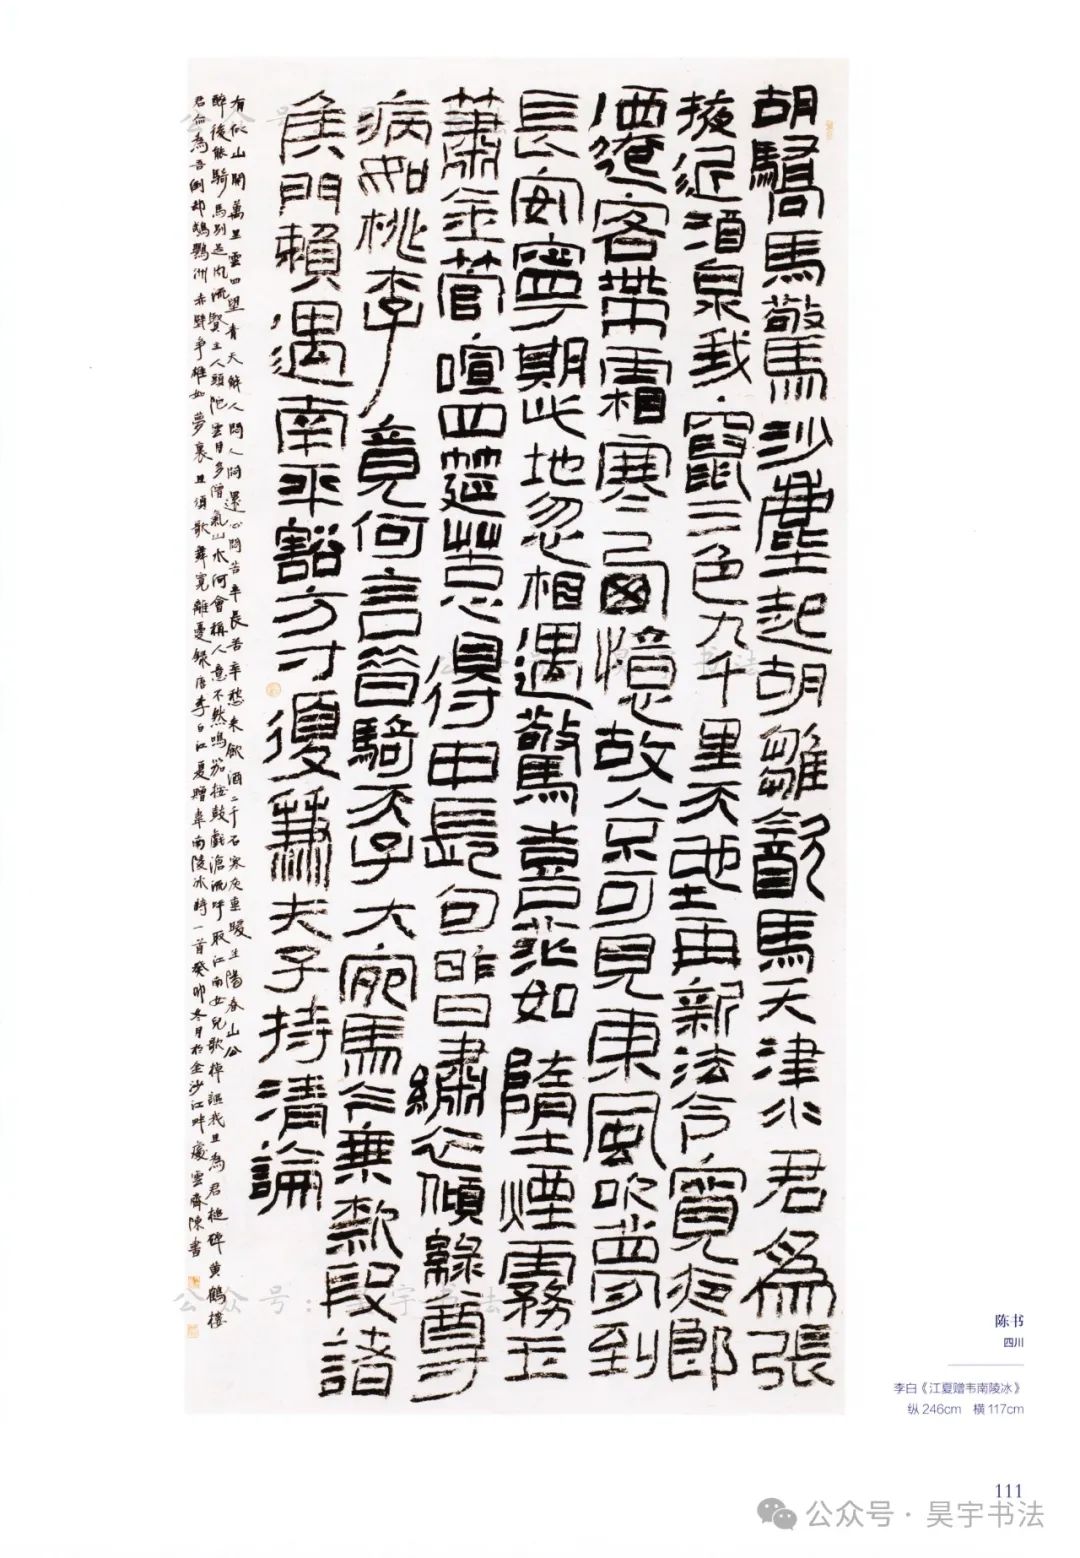 胡驕馬驚沙塵起胡雛飲馬天津水君為張
掖近酒泉我竄三色九千里天地再新法令寬夜郎
遷客帶霜寒西憶故人不可見東風吹夢到
長安寧期此地忽相遇驚喜茫如墮煙霧玉
簫金管喧四筵苦心不得申長句昨日繡衣傾綠尊
病如桃李竟何言昔騎天子大宛馬今乘款段諸
侯門賴遇南平豁方寸復兼夫子持清論
有似山開萬里雲四望青天解人悶人悶還心悶苦辛長苦辛愁來飲酒二千石寒灰重暖生陽春山公
醉後能騎馬別是風流賢主人頭陀雲月多僧氣山水何曾稱人意不然鳴笳按鼓戲滄流呼取江南女兒歌棹謳我且為君槌碎黃鶴樓
君亦為吾倒卻鸚鵡洲赤壁爭雄如夢裏且須歌舞寬離憂錄唐李白江夏贈韋南陵冰時一首癸卯冬月於金沙江畔慶雲齋陳書
陈书
四川
李白《江夏赠韦南陵冰》
纵246cm 横117cm
111
公众号·昊宇书法